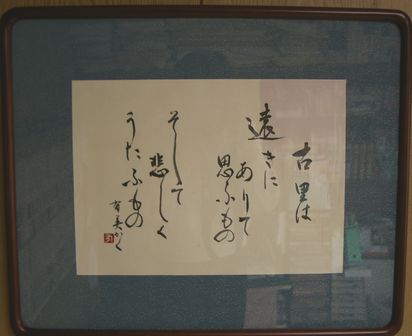 古里は
遠きに
ありて
思ふもの
そして
悲しく
うたふもの
有美かく